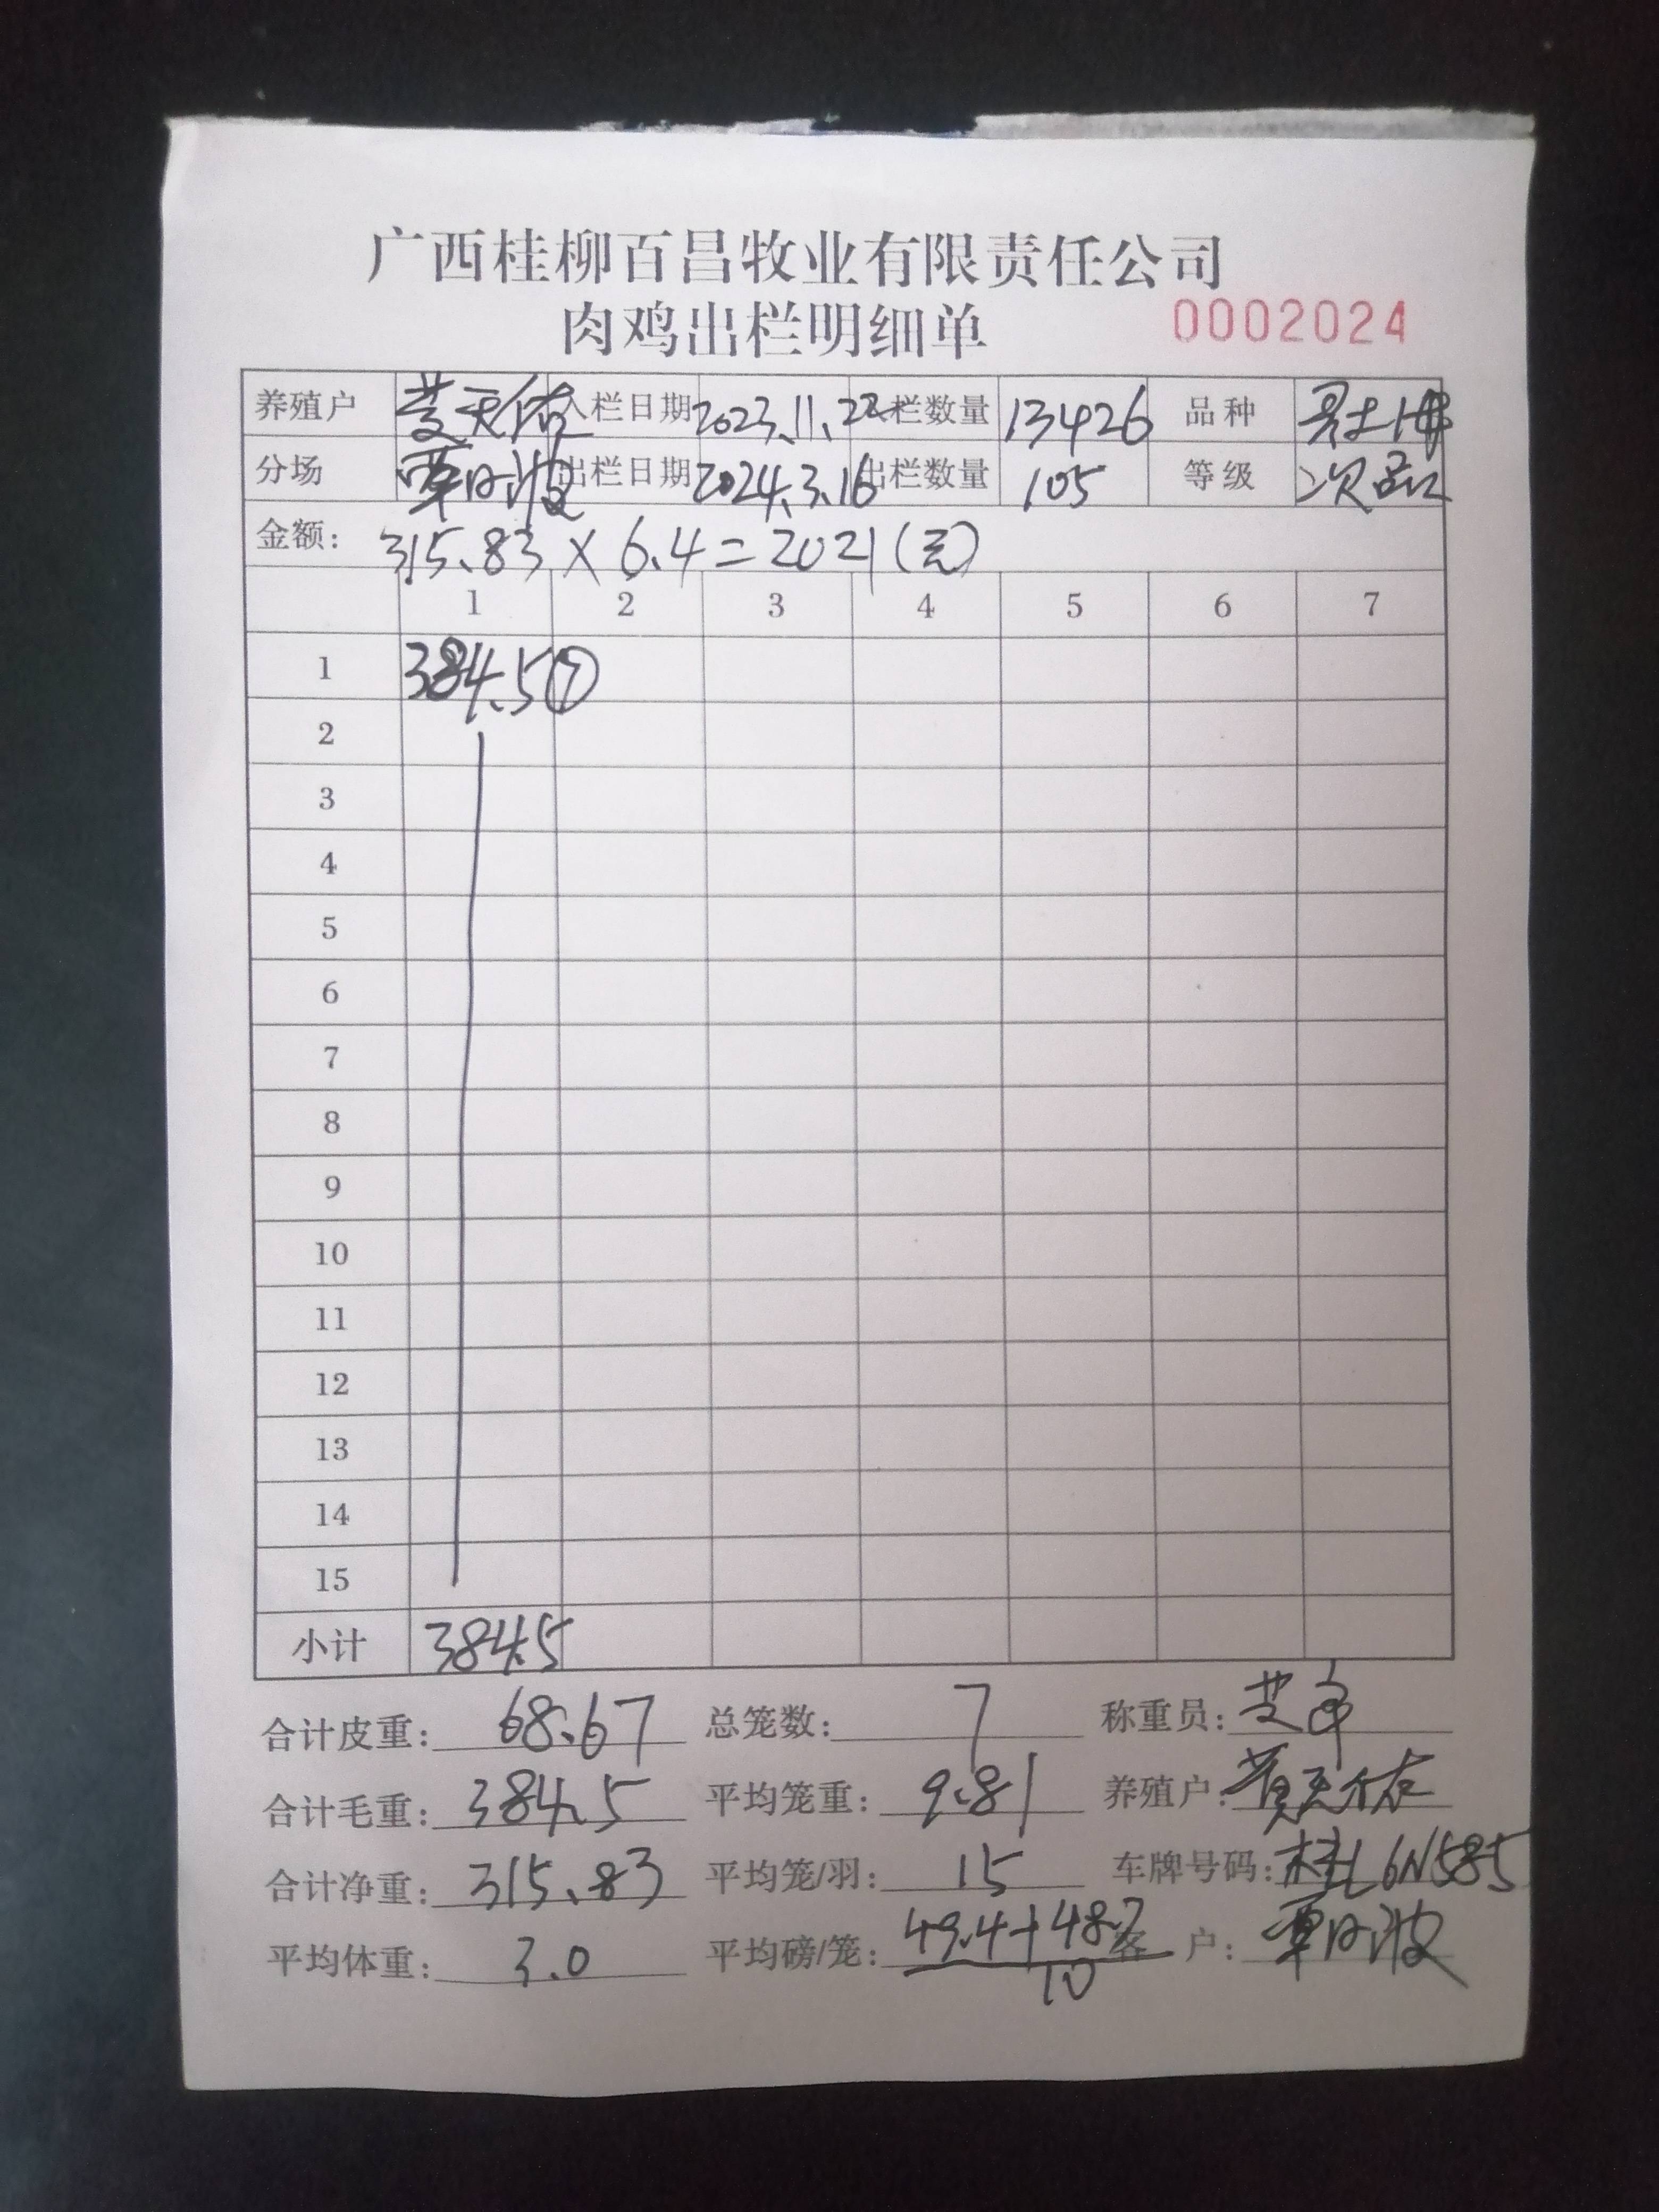 广西桂柳百昌牧业有限责任公司
肉鸡出栏明细单 0002024
养殖户 黄天佑 入栏日期 2023.11.22 栏数量 13426 品种
分场 覃 波 出栏日期 2024.3.16 出栏数量 105 等级 次品
金额: 315.83 × 6.4 = 2021(元)
1 2 3 4 5 6 7
1 384.5⑦
2
3
4
5
6
7
8
9
10
11
12
13
14
15
小计 384.5
合计皮重: 68.67 总笼数: 7 称重员:
合计毛重: 384.5 平均笼重: 9.81 养殖户: 黄天佑
合计净重: 315.83 平均笼/羽: 15 车牌号码: 桂L6N585
平均体重: 3.0 平均磅/笼: 49.4+48.7 客 户: 覃 波
10